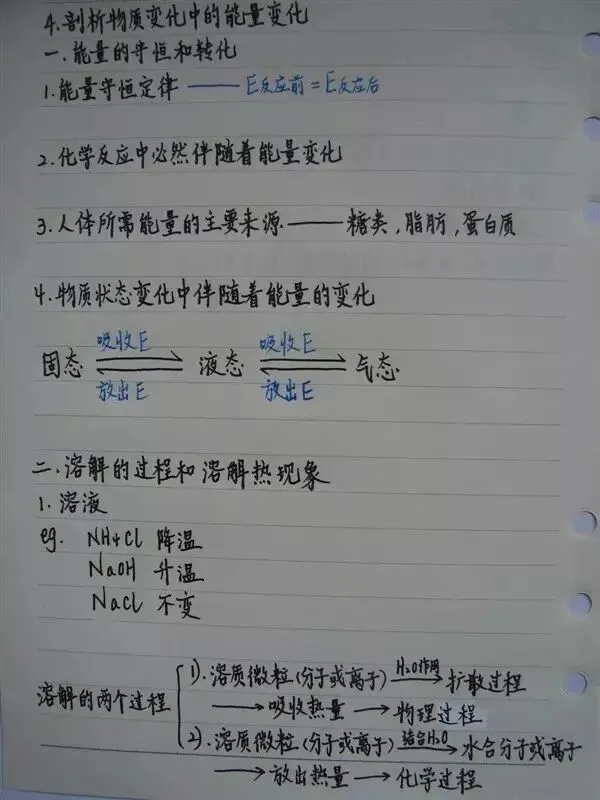 4.剖析物质变化中的能量变化
一.能量的守恒和转化
1.能量守恒定律 —— E反应前=E反应后
2.化学反应中必然伴随着能量变化
3.人体所需能量的主要来源 —— 糖类,脂肪,蛋白质
4.物质状态变化中伴随着能量的变化
吸收E 吸收E
固态 ⇌ 液态 ⇌ 气态
放出E 放出E
二.溶解的过程和溶解热现象
1.溶液
eg. NH4Cl 降温
NaOH 升温
NaCl 不变
溶解的两个过程
1).溶质微粒(分子或离子) H2O作用→ 扩散过程
→ 吸收热量 → 物理过程
2).溶质微粒(分子或离子) 结合H2O→ 水合分子或离子
→ 放出热量 → 化学过程